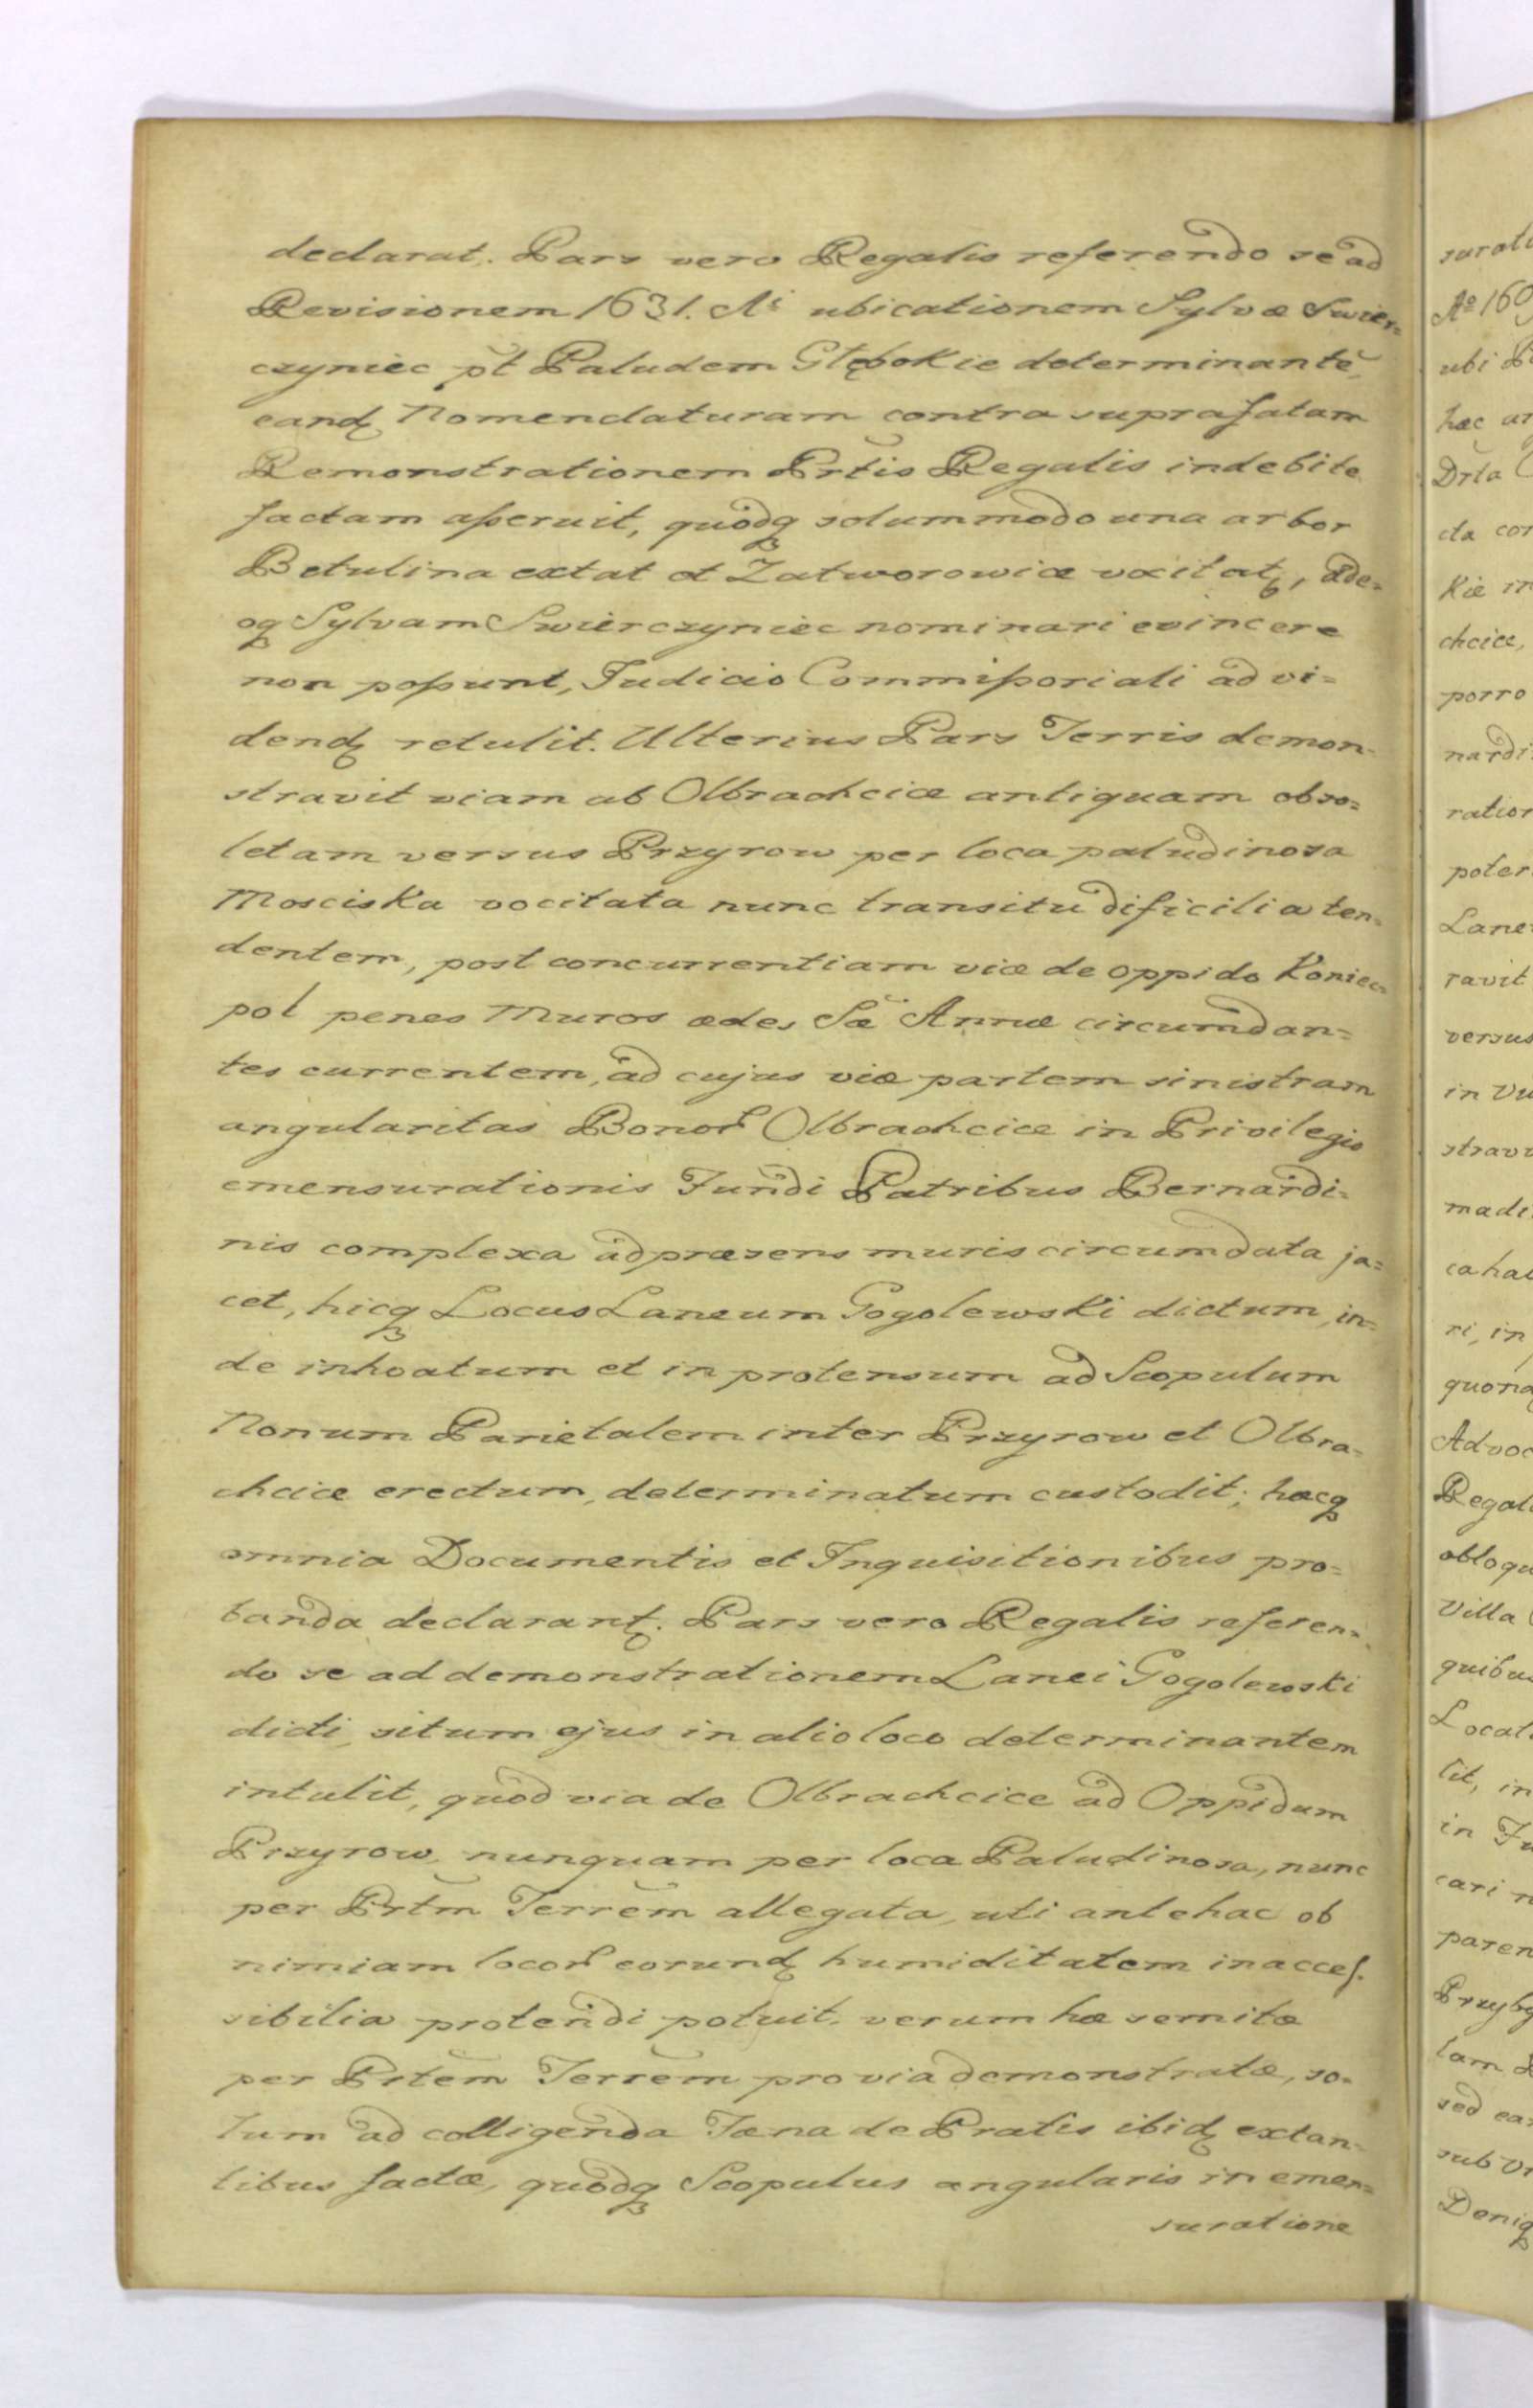 declarat. Pars vero Regalis referendo se ad
Revisionem 1631. Ai ubicationem Sylvæ Swier=
czyniec pt̃ Paludem Głębokie determinantẽ
eandꝫ Nomenclaturam contra suprafatam
Remonstrationem Prt̃is Regalis indebite
factam aſseruit, quodqꝫ solummodo una arbor
Betulina extat et Zatworowiæ vocitatꝫ, ade=
oqꝫ Sylvam Swierczyniec nominari evincere
non poſsunt, Judicio Commiſsoriali ad vi=
dendꝫ retulit. Ulterius Pars Terris demon=
stravit viam ab Olbrachcice antiquam obso=
letam versus Przyrow per loca paludinosa
Mosciska vocitata nunc transitu dificilia ten=
dentem, post concurrentiam viæ de oppido Koniec=
pol penes Muros ædes Sæ Annæ circumdan=
tes currentem, ad cujus viæ partem sinistram
angularitas Bonoꝝ Olbrachcice in Privilegio
emensurationis Fundi Patribus Bernardi=
nis complexa ad præsens muris circumdata ja=
cet, hicqꝫ Locus Laneum Gogolewski dictum, in=
de inhoatum et in protensum ad Scopulum
Nonum Parietalem inter Przyrow et Olbra=
chcice erectum, determinatum custodit; hæcqꝫ
omnia Documentis et Inquisitionibus pro=
banda declarantꝫ. Pars vero Regalis referen=
do se ad demonstrationem Lanei Gogolewski
dicti, situm ejus in alio loco determinantem
intulit, quod via de Olbrachcice ad Oppidum
Przyrow, nunquam per loca Paludinosa, nunc
per Prt̃m Terrẽm allegata, uti antehac ob
nimiam locoꝝ eorundꝫ humiditatem inacceſ.
sibilia protendi potuit, verum hæ semitæ
per Prtẽm Terrẽm pro via demonstratæ, so=
lum ad colligenda Fæna de Pratis ibidꝫ extan=
tibus factæ, quodqꝫ Scopulus angularis in emen=
suratione
surati
Aº 160
ubi
hæc
Drta
cta con
Kie in
chcice,
porro
nardi
ration
poter
Lane
ravit
versus
in Vu
strav
made
ca hal
ri, in
quon
Advoc
Regal
obloqu
Villa
quibu
Locat
lit, in
in Fu
cari n
paren
Przyby
lam
sed ea
sub
Deniq